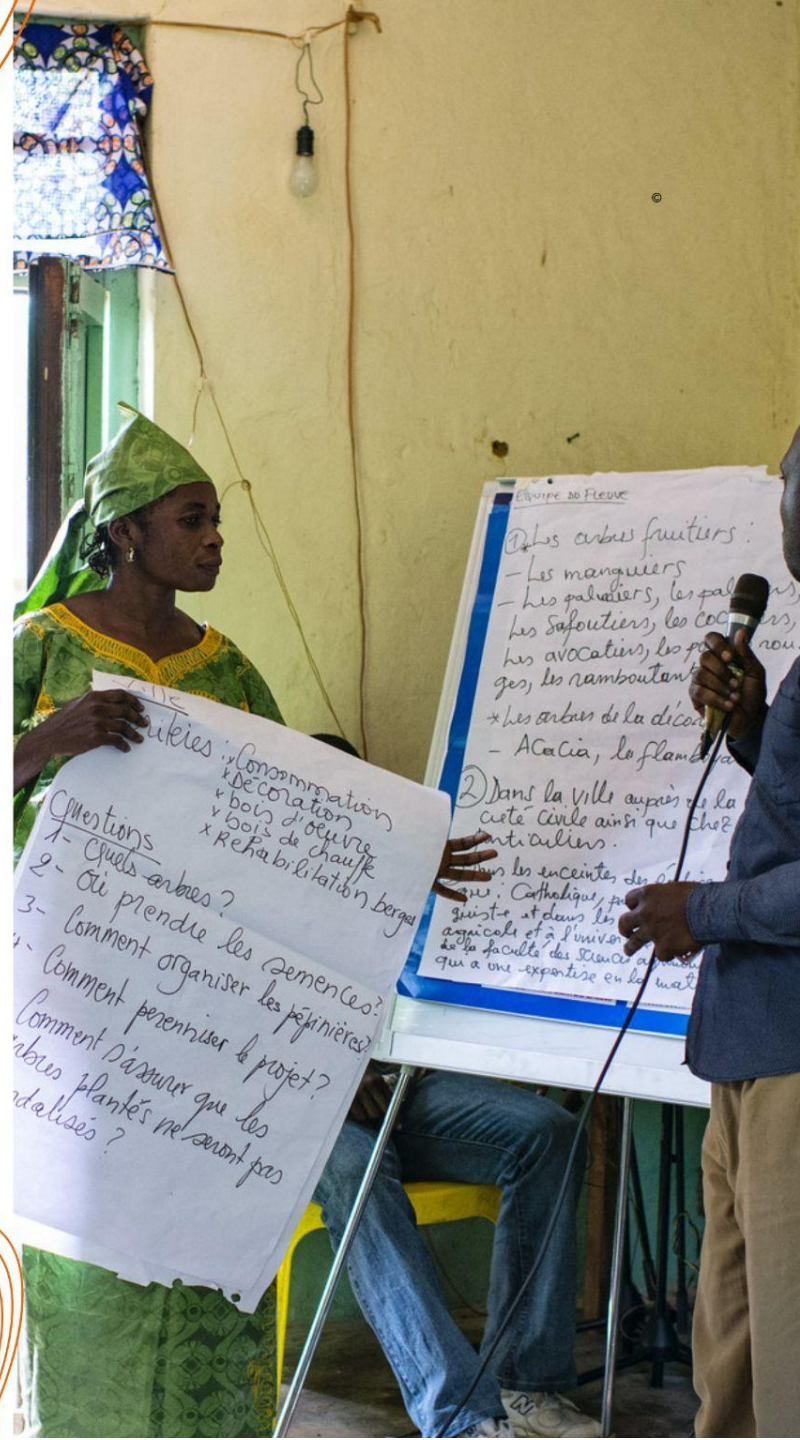 ©
EQUIPE DU FLEUVE
① Les arbres fruitiers :
- Les manguiers
- Les palmiers, les pal
Les Safoutiers, les coc ers,
Les avocatiers, les po rou-
ges, les ramboutan
* Les arbres de la décor
- Acacia, le flamboya
② Dans la ville auprès de la
ciété civile ainsi que chez
articuliers.
les enceintes des
que : Catholique, p
et dans les
agricole et à l'univer
de la faculté des sciences
qui a une expertise en la mat
Ville
: x Consommation
x Décoration
x bois d'oeuvre
x bois de chauffe
x Réhabilitation berges
Questions
1- Quels arbres ?
2- Où prendre les semences?
3- Comment organiser les pépinières?
4- Comment perenniser le projet ?
Comment s'assurer que les
arbres plantés ne seront pas
dalisés ?
N